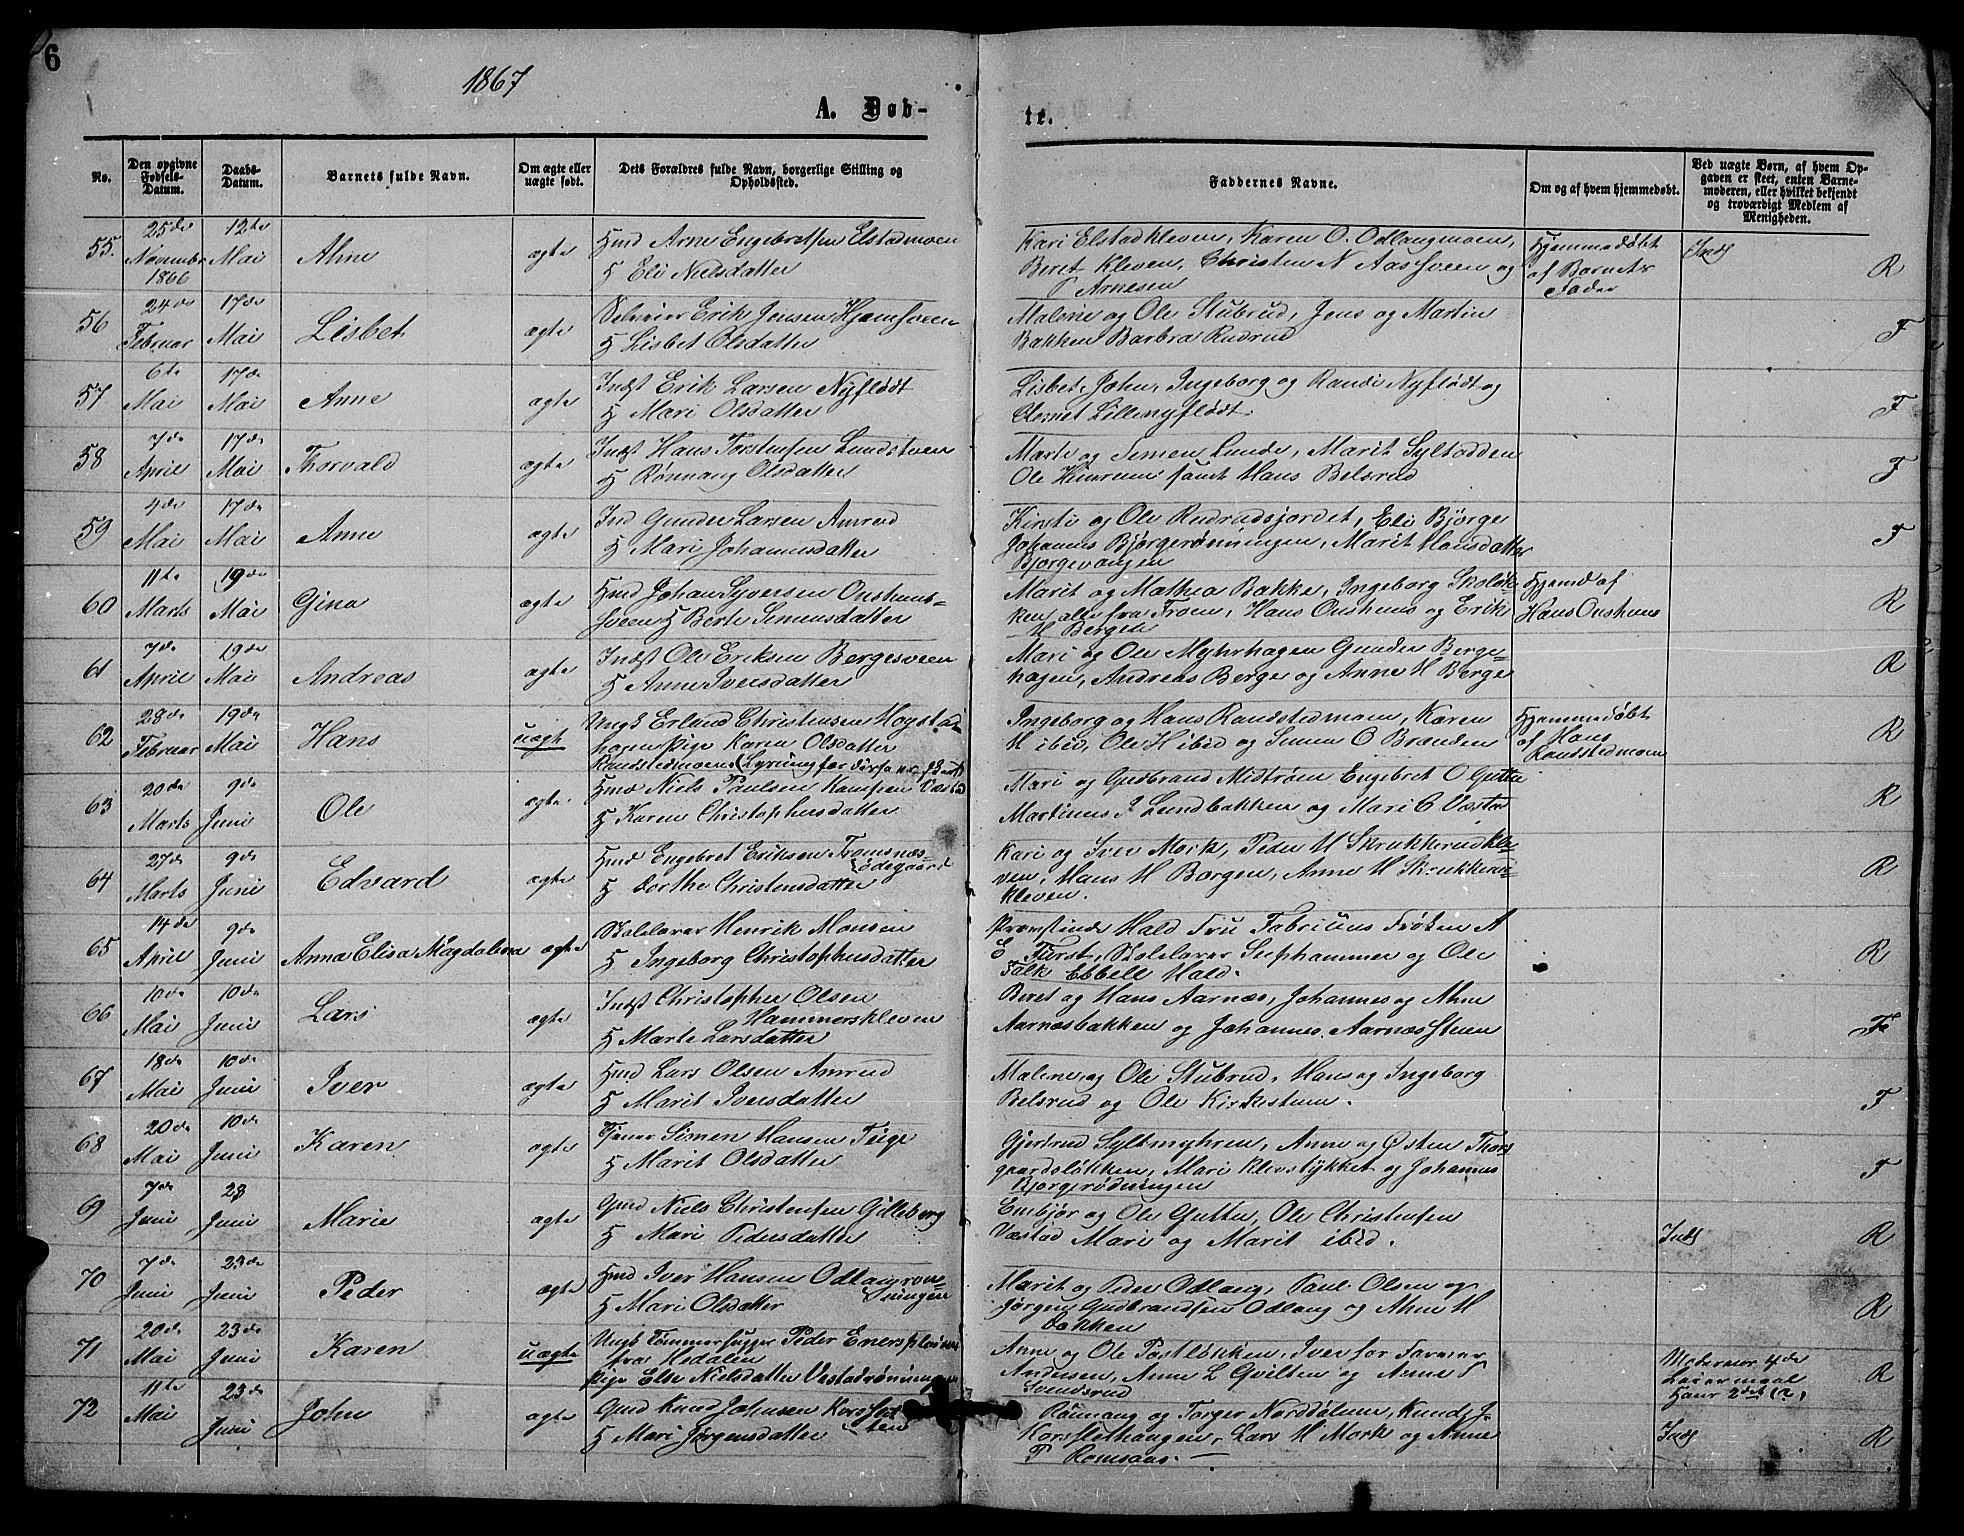 6
1867
A. Døb-
te.
No.
Den opgivne Fødsels-Datum.
Daabs-Datum.
Barnets fulde Navn.
Om ægte eller uægte født.
Dets Forældres fulde Navn, borgerlige Stilling og Opholdssted.
Faddernes Navne.
Om og af hvem hjemmedøbt.
Ved uægte Børn, af hvem Opgaven er skeet, enten Barnemoderen, eller hvilket bekjendt og troværdigt Medlem af Menigheden.
55. 25de November 1866 12te Mai Ahne ægte Hmd Arne Engebretsen Elstadmoen
H Eli Nielsdatter
Kari Elstadkleven, Karen O. Odlangmoen,
Beret Kleven, Christen N Aassveen og
P Arnesen
Hjemmedøbt
af Barnets
Fader
Inds R
56 24de Februar 17de Mai Lisbet ægte Selveier Erik Jensen Hjemsveen
H Lisbet Olsdatter
Malene og Ole Stubrud, Jens og Martin
Bakken Barbra Rudrud
F
57 6te Mai 17de Mai Anne ægte Indst Erik Larsen Nyflødt
H Mari Olsdatter
Lisbet, John, Ingeborg og Randi Nyflødt og
Lillenyflødt.
F
58 7de April 17de Mai Thorvald ægte Indst Hans Torstensen Lundsveen
H Rønnang Olsdatter
Marte og Simen Lunde, Marit Syltodden
Ole samt Hans Belsrud
F
59 4de Mai 17de Mai Anne ægte Ind Gunder Larsen Amrud
H Mari Johannesdatter
Kirsti og Ole Rudrudsjordet, Eli Bjørge
Johannes Bjørgerønningen, Marit Hansdatter
Bjørgevangen
F
60 11te Marts 19de Mai Gina ægte Hmd Johan Syversen Onshuus-
sveen H Berte Simensdatter
Marit og Mathea Bakke, Ingeborg Skoløk-
ken, alle fra Froen, Hans Onshuus og Erik
H Berget
Hjemd af
Hans Onshuus
R
61 7de April 19de Mai Andreas ægte Indst Ole Eriksen Bergesveen
H Anne Iversdatter
Mari og Ole Myhrhagen Gunder Berge-
hagen, Andreas Berge og Anne H Berge
R
62 28de Februar 19de Mai Hans uægt Ungk Erland Christensen Høystad-
hagen Pige Karen Olsdatter
Randstedmoen
Ingeborg og Hans Randstedmoen, Karen
H ibid, Ole H ibid og Simen O Brænden
Hjemmedøbt
af Hans
Randstedmoen
R
63 20de Marts 9de Juni Ole ægte. Hmd Niels Paulsen Kampen
H Karen Christophersdatter
Mari og Gudbrand Midtrøen Engebret O Gutte
Martinus J Lundbakken og Mari C
R
64 27de Marts 9de Juni Edvard ægte Hmd Engebret Eriksen Tromsnæs-
ødegaard
H Dorthe Christensdatter
Kari og Iver Mork, Peder H Skrukkerudkle-
ven, Hans H Borgen, Anne H Skrukkerud-
kleven.
R
65 14de April 9de Juni Anna Elisa Magdalena ægte Skolelærer Henrik Monsen
H Ingeborg Christophersdatter
Provstinde Hald Fru Fabricius Frøken A
E Fürst, Skolelærer Sylhammer og Ole
Falk Ebbell Hald.
R
66 10de Mai 10de Juni Lars ægte Indst Christopher Olsen
Hammerskleven
H Marte Larsdatter
Beret og Hans Aarnæs, Johannes og Ahne
Aarnæsbakken og Johannes Aarnæssteen
F
67 18de Mai 10de Juni Iver ægte Hmd Lars Olsen Amrud
H Marit Iversdatter
Malene og Ole Stubrud, Hans og Ingeborg
Belsrud og Ole Kirkestuen.
F
68 20de Mai 10de Juni Karen ægte Tjener Simen Hansen Teige
H Marit Olsdatter
Gjertrud Syltmyhren, Anne og Østen Thors-
gaardsløkken, Mari Klevstykket og Johannes
Bjørgerødningen
F
69 7de Juni 28 Juni Marie ægte Gmd Niels Christensen Gilleberg
H Mari Pedersdatter
Embjør og Ole Gutte, Ole Christensen
Væstad Mari og Marit ibid.
Inds R
70 7de Juni 23de Juni Peder ægte Hmd Iver Hansen Odlangrøn-
ningen
H Mari Olsdatter
Marit og Peder Odlang, Paul Olsen og
Jørgen Gudbrandsen Odlang og Ahne H
Bakken
R
71 20de Mai 23de Juni Karen uægte Ungk Tømmerhugger Peder
fra Hedalen
Pige Else Nielsdatter Vestadrønningen
Anne og Ole Postløkken, Iver
Andersen, Anne L Qvilten og Anne P
Svendsrud
Moderens 4de
Leiermaal
Hans 2det (?)
R
72 11te Mai 23de Juni John ægte Gmd Knud Johnsen Korsflat-
ten
H Mari Jørgensdatter
Rønnang og Torger Norddølum, Knud J.
Korsflathaugen, Lars H Mork og Anne
P Romsaas.
Inds R